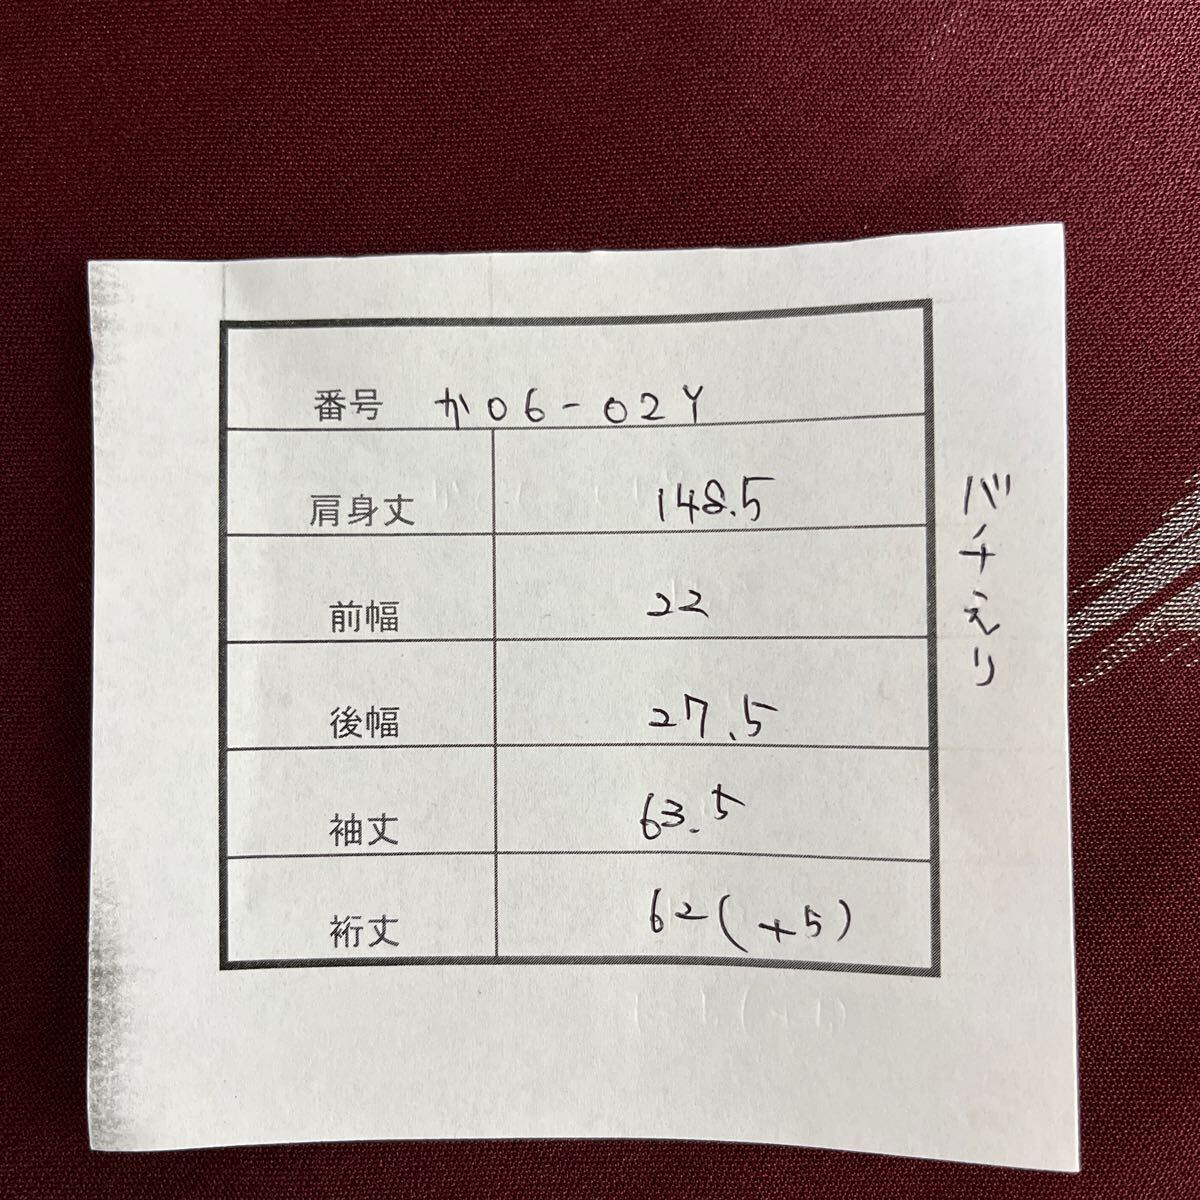 番号 か06-02Y
肩身丈 148.5
前幅 22
後幅 27.5
袖丈 63.5
裄丈 62(+5)
バチえり